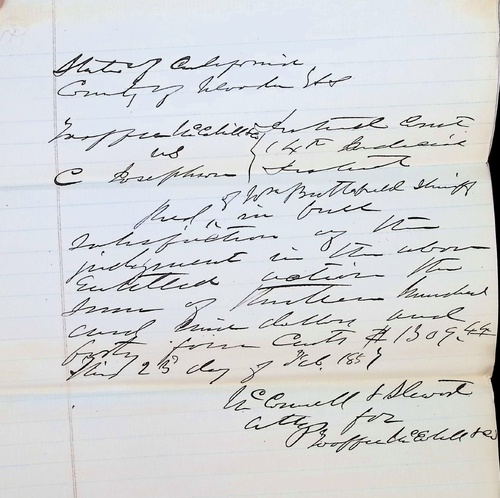 State of California
County of Nevada SS
McCahill & Co } District Court
vs } 14th Judicial
C Josephson } District
of Wm Butterfield Shiff
Recd, in full
satisfaction of the
judgment in the above
Entitled action the
sum of thirteen hundred
and Nine dollars and
forty four Cents $1309.44
this 23d day of Feb. 1857
McConnell & Stewart
Attys for
McCahill & Co